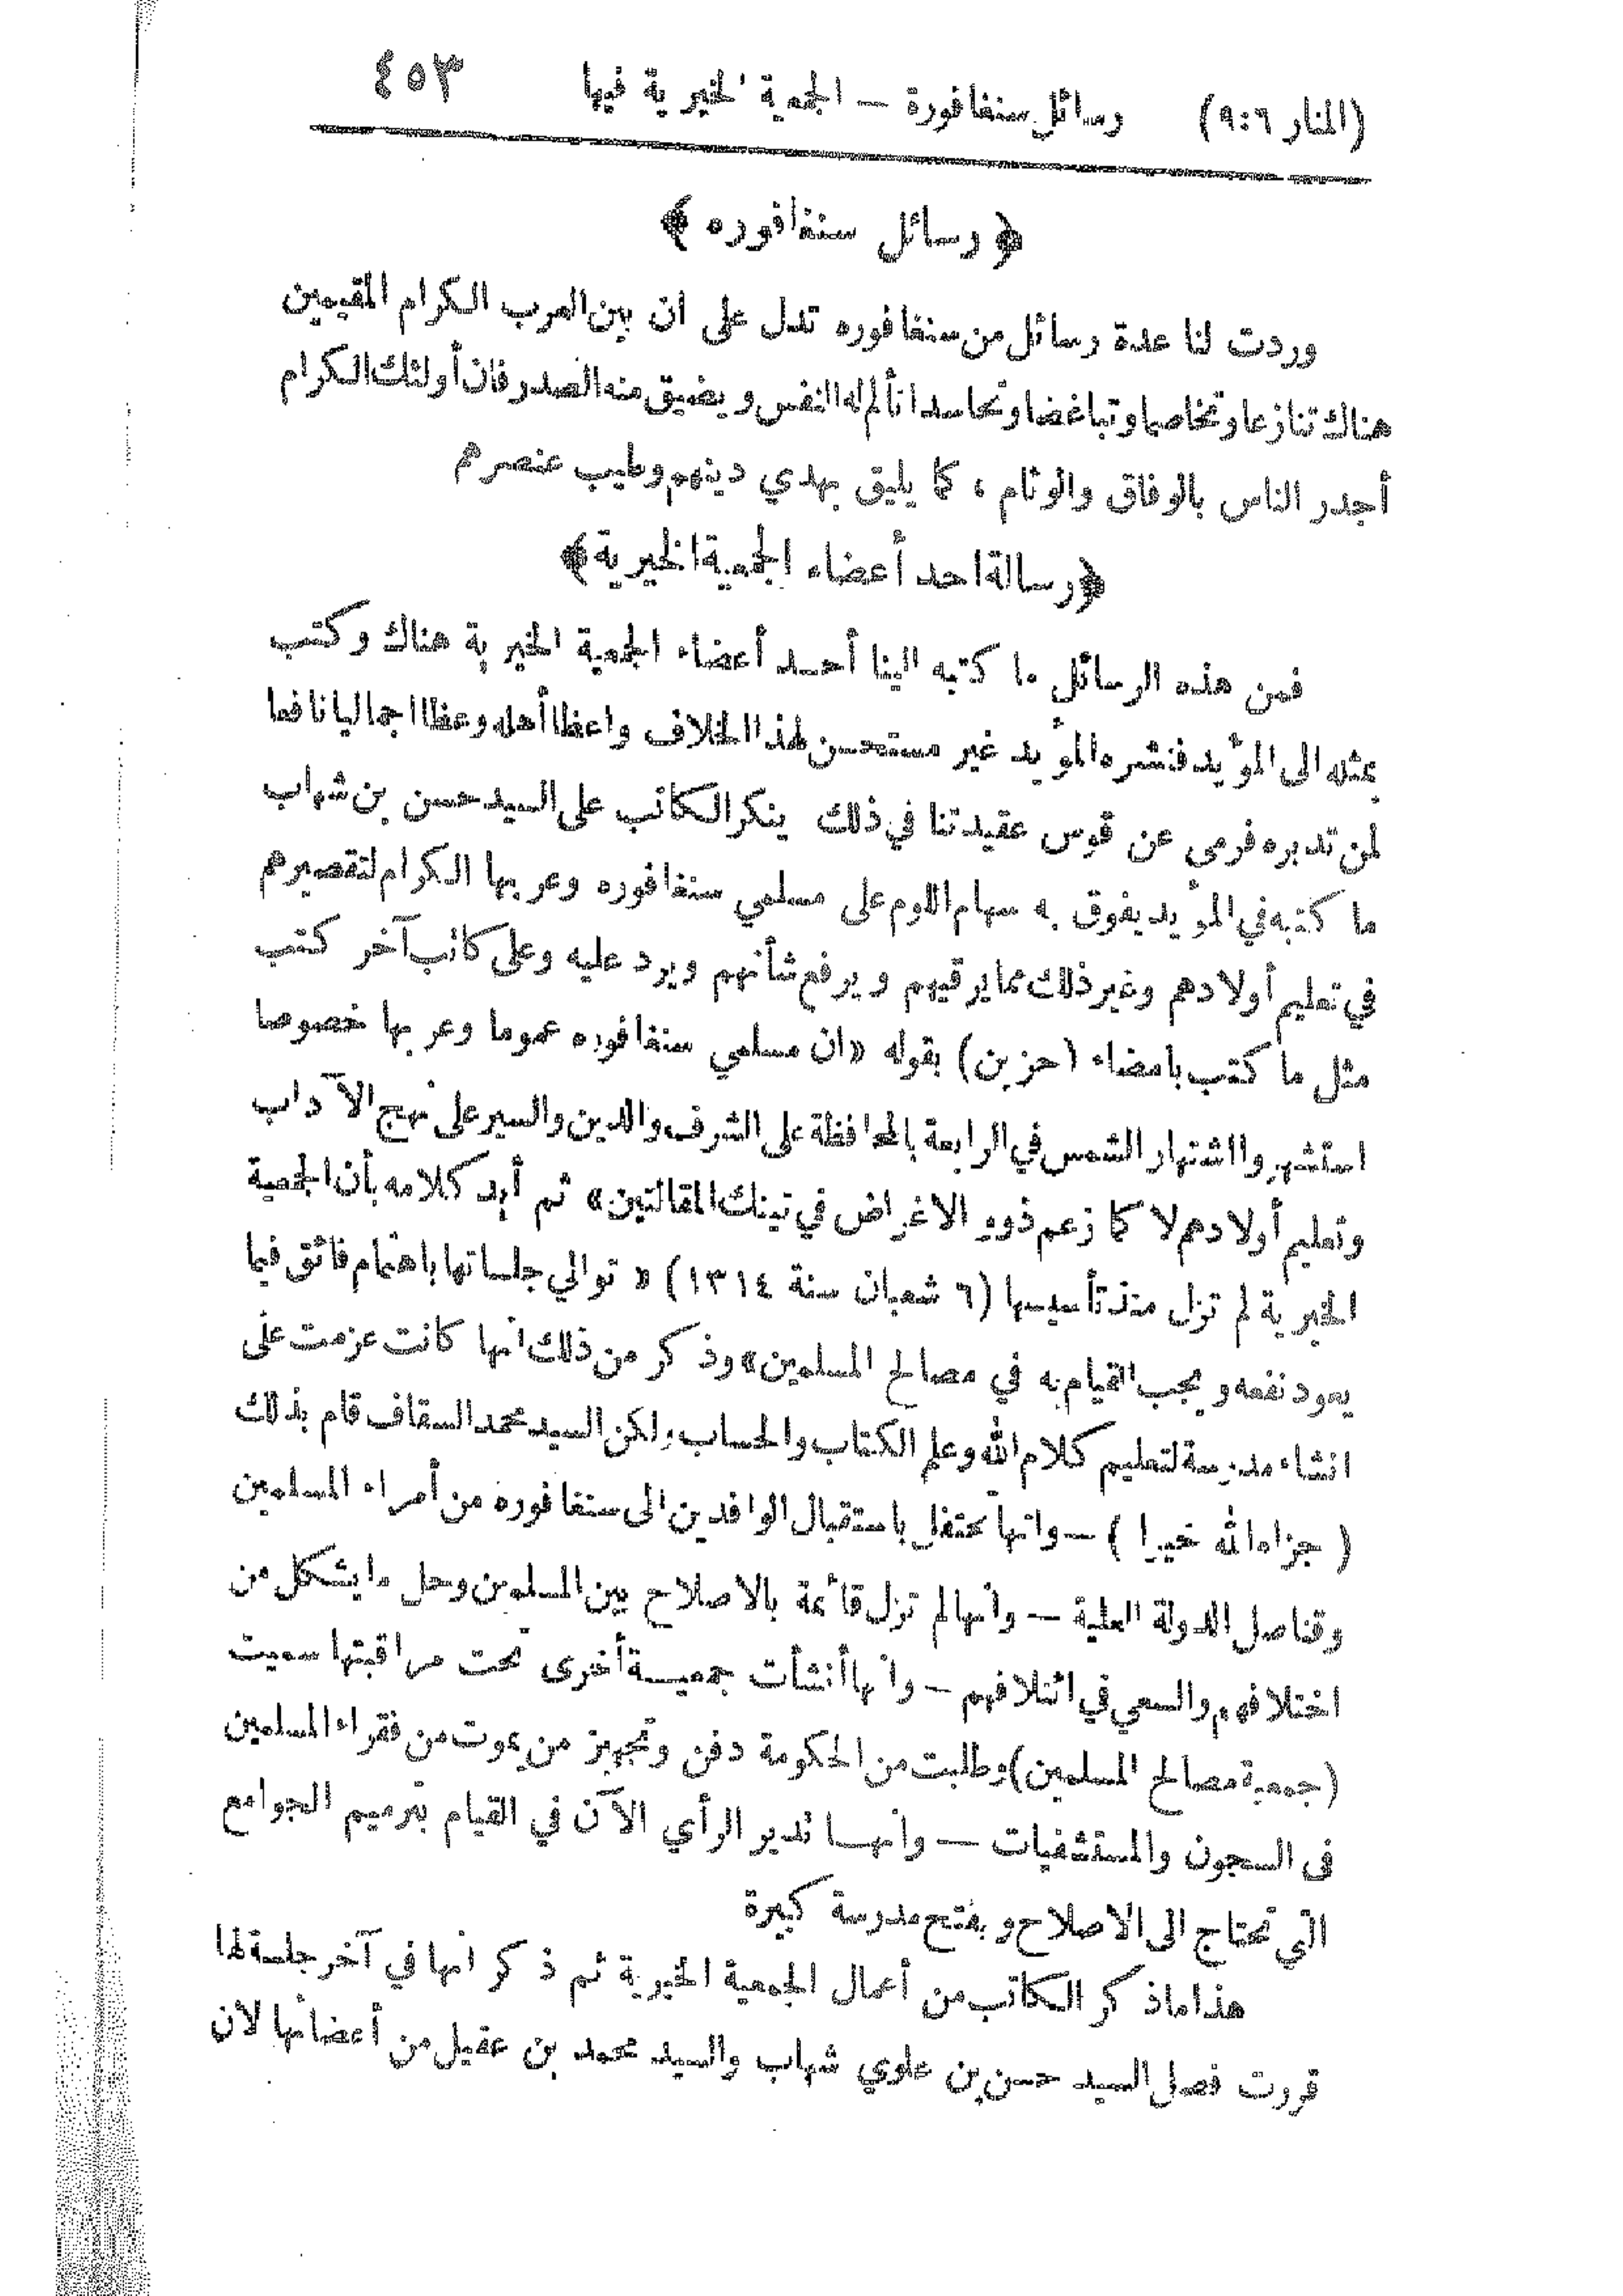 (المنار ٩:٦) رسائل سنغافورة — الجمعية الخيرية فيها ٤٥٣
﴿ رسائل سنغافوره ﴾
وردت لنا عدة رسائل من سنغافوره تدل على ان بين العرب الكرام المقيمين
هناك تنازعا وتخاصما وتباغضا وتحاسدا تألم له النفس ويضيق منه الصدر فان أولئك الكرام
أجدر الناس بالوفاق والوئام ، كما يليق بهدي دينهم وطيب عنصرهم
﴿رسالة احد أعضاء الجمعية الخيرية﴾
فمن هذه الرسائل ما كتبه الينا أحد أعضاء الجمعية الخيرية هناك وكتب
بمثله الى المؤيد فنشره المؤيد غير مستحسن لهذا الخلاف واعظا أهله وعظا اجماليا نافعا
لمن تدبره فرمى عن قوس عقيدتنا في ذلك ينكر الكاتب على السيد حسن بن شهاب
ما كتبه في المؤيد يفوق به سهام اللوم على مسلمي سنغافوره وعربها الكرام لتقصيرهم
في تعليم أولادهم وغير ذلك مما يرقيهم ويرفع شأنهم ويرد عليه وعلى كاتب آخر كتب
مثل ما كتب بامضاء (حزين) بقوله «ان مسلمي سنغافوره عموما وعربها خصوصا
استشهروا اشتهار الشمس في الرابعة بالمحافظة على الشرف والدين والسير على نهج الآداب
وتعليم أولادهم لا كما زعم ذوو الاغراض في تينك المقالتين» ثم أيد كلامه بأن الجمعية
الخيرية لم تزل منذ تأسيسها (٦ شعبان سنة ١٣١٤) « توالي جلساتها باهتمام فائق فيما
يعود نفعه ويجب القيام به في مصالح المسلمين» وذكر من ذلك انها كانت عزمت على
انشاء مدرسة لتعليم كلام الله وعلم الكتاب والحساب ولكن السيد محمد السقاف قام بذلك
( جزاه الله خيرا ) — وانها تحتفل باستقبال الوافدين الى سنغافوره من أمراء المسلمين
وقناصل الدولة العلية — وانها لم تزل قائمة بالاصلاح بين المسلمين وحل ما يشكل من
اختلافهم والسعي في ائتلافهم — وانها أنشأت جمعية أخرى تحت مراقبتها سميت
(جمعية مصالح المسلمين) وطلبت من الحكومة دفن وتجهيز من يموت من فقراء المسلمين
فى السجون والمستشفيات — وانها تدير الرأي الآن في القيام بترميم الجوامع
التي تحتاج الى الاصلاح وبفتح مدرسة كبيرة
هذا ما ذكر الكاتب من أعمال الجمعية الخيرية ثم ذكر انها في آخر جلسة لها
قررت فصل السيد حسن بن علوي شهاب والسيد محمد بن عقيل من أعضائها لان